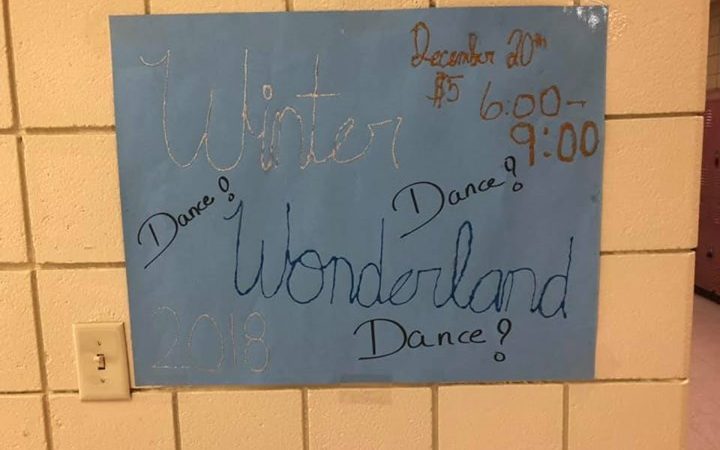 December 20th
$5
6:00-
9:00
Winter
Dance?
Dance?
Wonderland
2018
Dance?